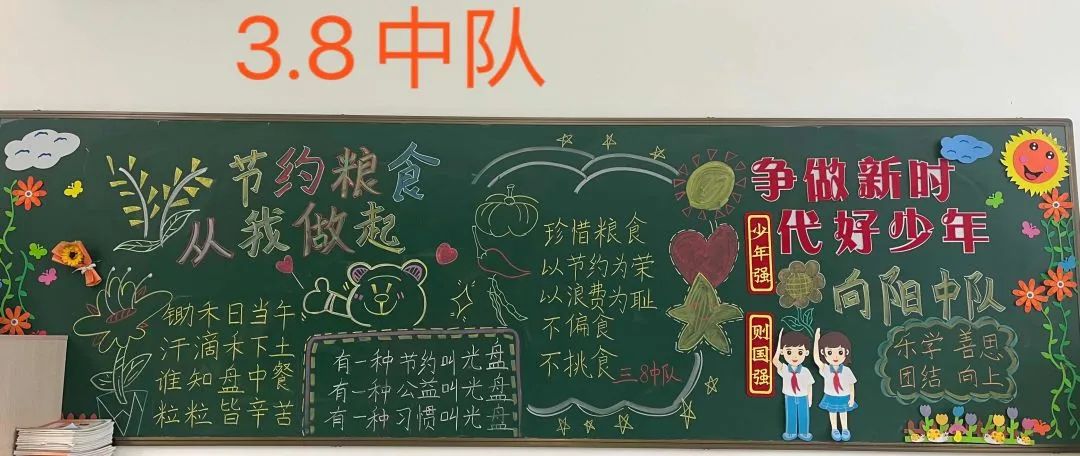 3.8中队
节约粮食
从我做起
锄禾日当午
汗滴禾下土
谁知盘中餐
粒粒皆辛苦
有一种节约叫光盘
有一种公益叫光盘
有一种习惯叫光盘
珍惜粮食
以节约为荣
以浪费为耻
不偏食
不挑食
三.8中队
争做新时
代好少年
少年强
则国强
向阳中队
乐学 善思
团结 向上